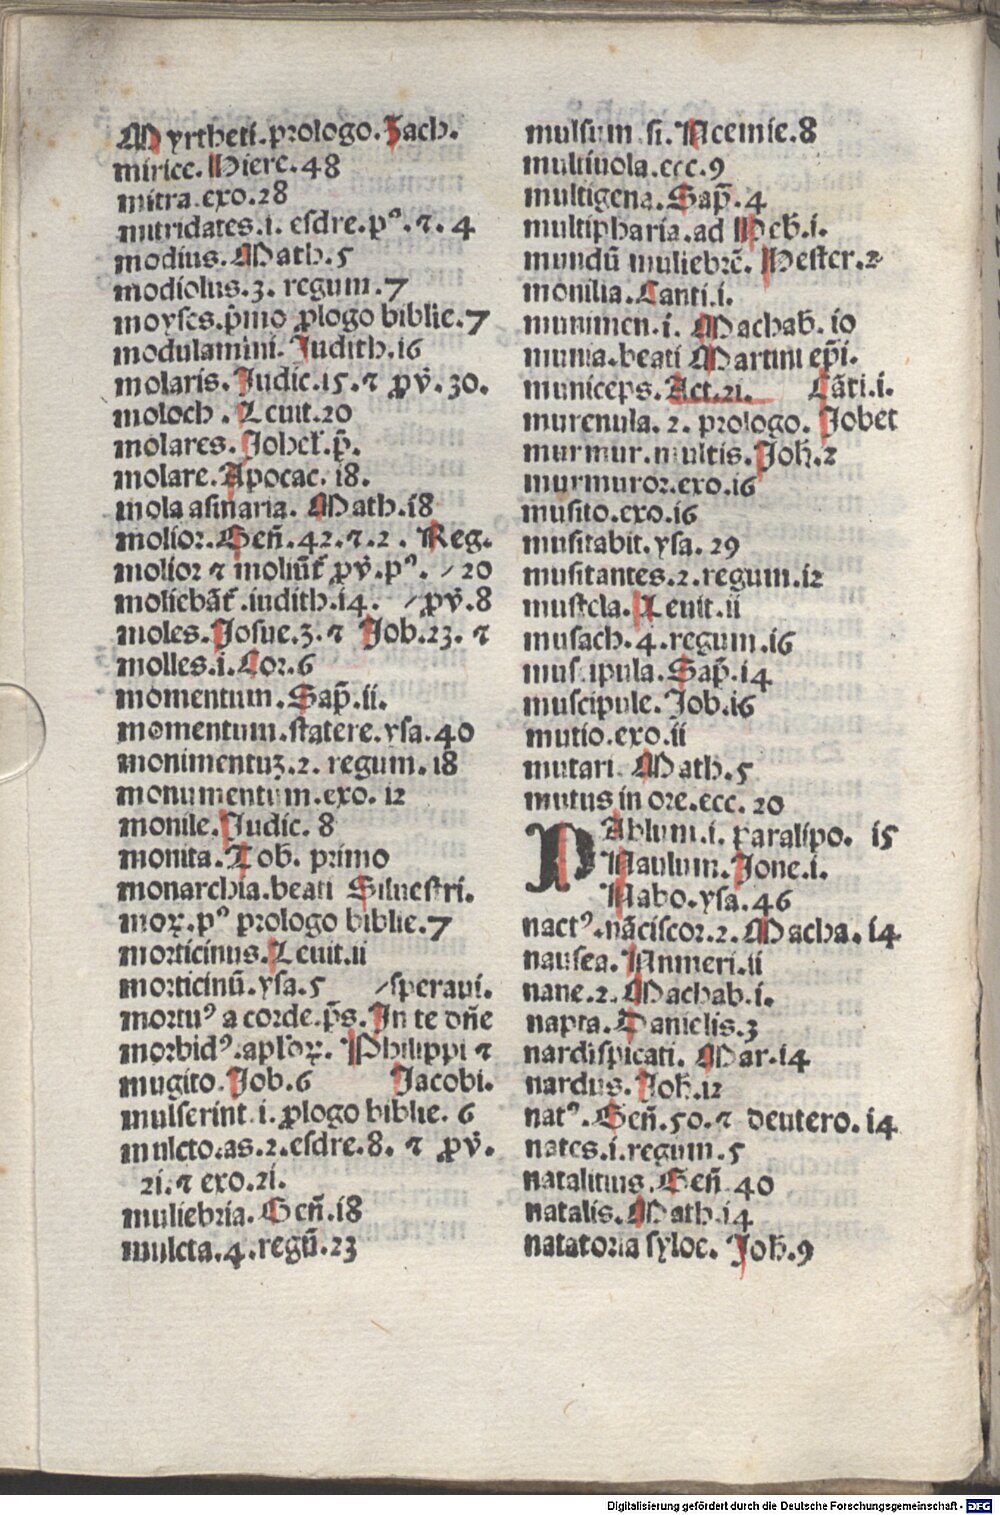 Myrtheti.prologo.Zach.
mirice.Hiere.48
mitra.exo.28
mitridates.i. esdre.pº.⁊.4
modius.Math.5
modiolus.3. regum.7
moyses.p̄mo ꝓlogo biblie.7
modulamini.Judith.16
molaris.Judic.15.⁊ ꝓv̄.30.
moloch.Leuit.20
molares.Johel̄.p̄.
molare.Apocac.18.
mola asinaria.Math.18
molior.Gen̄.42.⁊.2.Reg.
molior ⁊ moliūt̄ ꝓv̄.pº. /20
moliebāt̄.iudith.14. /ꝓv̄.8
moles.Josue.3.⁊ Job.23.⁊
molles.i.Cor.6
momentum.Sap̄.ii.
momentum.statere.ysa.40
monimentuꝫ.2. regum.18
monumentum.exo.12
monile.Judic.8
monita.Tob. primo
monarchia.beati Siluestri.
mox.pº prologo biblie.7
morticinus.Leuit.ii
morticinū.ysa.5 /speraui.
mortuꝰ a corde.p̄s.In te dn̄e
morbidꝰ.apl̄oꝝ.Philippi ⁊
mugito.Job.6 Jacobi.
mulserint.i.ꝓlogo biblie.6
mulcto.as.2.esdre.8.⁊ ꝓv̄.
21.⁊ exo.21.
muliebria.Gen̄.18
mulcta.4.regū.23
mulsum.si.Neemie.8
multiuola.ecc.9
multigena.Sap̄.4
multipharia.ad Heb̄.i.
mundū muliebrē.Hester.2
monilia.Canti.i.
munimen.i.Machab.10
munia.beati Martini ep̄i.
municeps.Act.21. Cāti.i.
murenula.2. prologo. Jobet
murmur.multis.Joh̄.2
murmuror.exo.16
musito.exo.16
musitabit.ysa.29
musitantes.2.regum.12
mustela.Leuit.ii
musach.4.regum.16
muscipula.Sap̄.14
muscipule.Job.16
mutio.exo.ii
mutari.Math.5
mutus in ore.ecc.20
NAblum.i.paralipo. 15
Naulum.Jone.i.
Nabo.ysa.46
nactꝰ.nāciscor.2.Macha.14
nausea.Numeri.ii
nane.2.Machab.i.
napta.Danielis.3
nardispicati.Mar.14
nardus.Joh̄.12
natꝰ.Gen̄.50.⁊ deutero.14
nates.i.regum.5
natalitius.Gen̄.40
natalis.Math.14
natatoria syloe.Joh̄.9
Digitalisierung gefördert durch die Deutsche Forschungsgemeinschaft - DFG